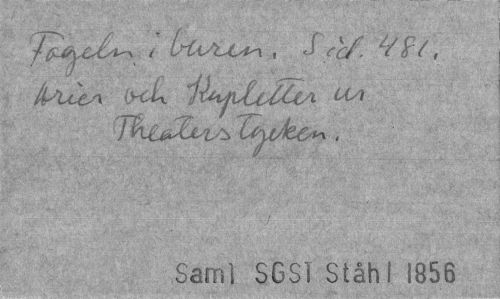 Fogeln i buren. Sid. 481.
Arier och Kupletter ur
Theaterstycken.
Saml SGS1 Ståhl 1856